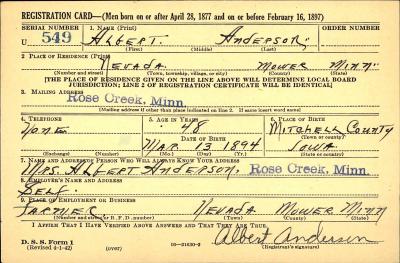 REGISTRATION CARD—(Men born on or after April 28, 1877 and on or before February 16, 1897)
SERIAL NUMBER 1. NAME (Print) ORDER NUMBER
U 549 ALBERT ANDERSON
(First) (Middle) (Last)
2. PLACE OF RESIDENCE (Print)
NEVADA MOWER MINN
(Number and street) (Town, township, village, or city) (County) (State)
[THE PLACE OF RESIDENCE GIVEN ON THE LINE ABOVE WILL DETERMINE LOCAL BOARD
JURISDICTION; LINE 2 OF REGISTRATION CERTIFICATE WILL BE IDENTICAL]
3. MAILING ADDRESS
Rose Creek, Minn.
[Mailing address if other than place indicated on line 2. If same insert word same]
4. TELEPHONE 5. AGE IN YEARS 6. PLACE OF BIRTH
NONE 48 MITCHELL COUNTY
DATE OF BIRTH (Town or county)
MAR. 13 1894 IOWA
(Exchange) (Number) (Mo.) (Day) (Yr.) (State or country)
7. NAME AND ADDRESS OF PERSON WHO WILL ALWAYS KNOW YOUR ADDRESS
MRS. ALBERT ANDERSON, Rose Creek, Minn.
8. EMPLOYER'S NAME AND ADDRESS
SELF
9. PLACE OF EMPLOYMENT OR BUSINESS
FARMER NEVADA MOWER MINN
(Number and street or R. F. D. number) (Town) (County) (State)
I AFFIRM THAT I HAVE VERIFIED ABOVE ANSWERS AND THAT THEY ARE TRUE.
D. S. S. Form 1 Albert Anderson
(Revised 4-1-42) (over) 16—21630-2 (Registrant's signature)